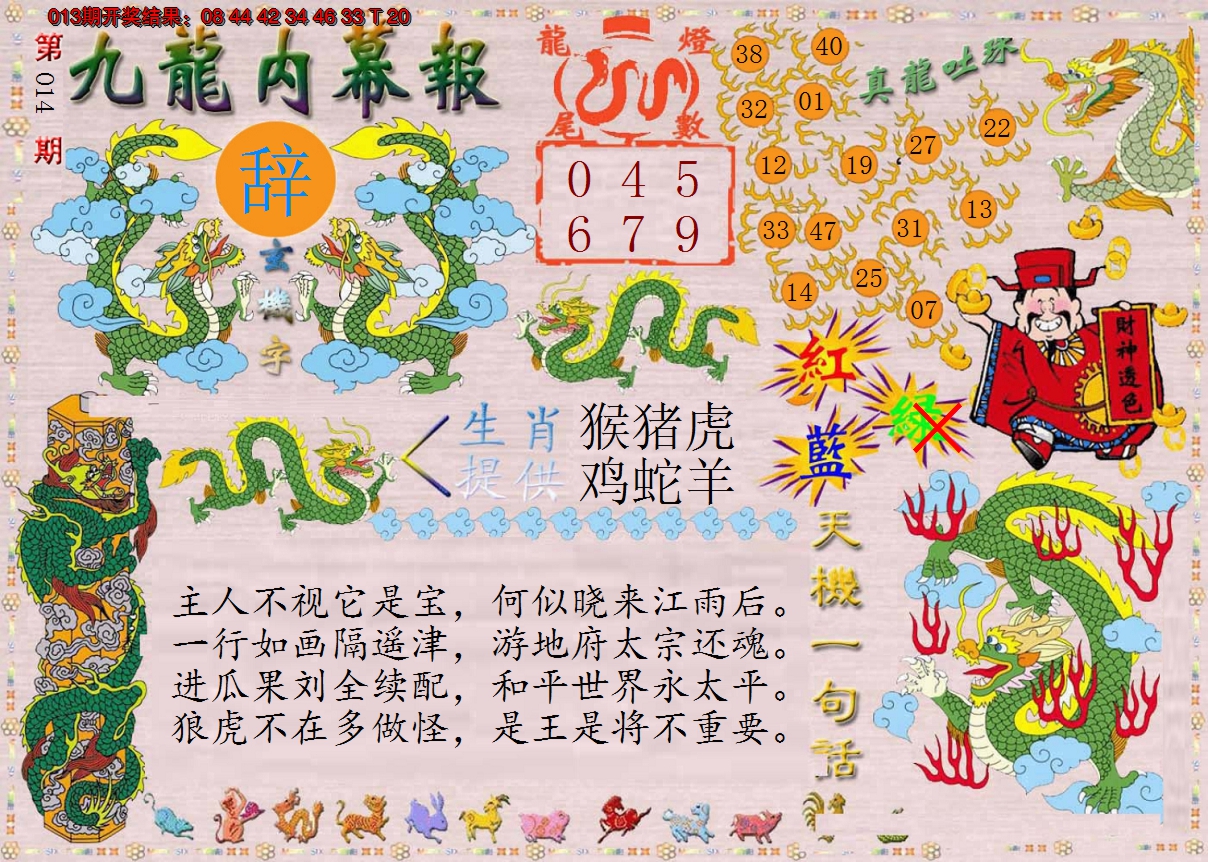 013期开奖结果：06 44 42 34 46 33 T 20
第014期
九龍内幕報
辞
玄機字
龍燈
尾數
0 4 5
6 7 9
38
40
32
01
真龍吐珠
12
19
27
22
33
47
31
13
14
25
07
財神透色
紅
綠
藍
生肖提供
猴猪虎
鸡蛇羊
天機一句話
主人不视它是宝，何似晓来江雨后。
一行如画隔遥津，游地府太宗还魂。
进瓜果刘全续配，和平世界永太平。
狼虎不在多做怪，是王是将不重要。